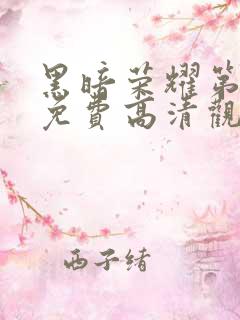 黑暗荣耀第
免費高清觀
西子绪